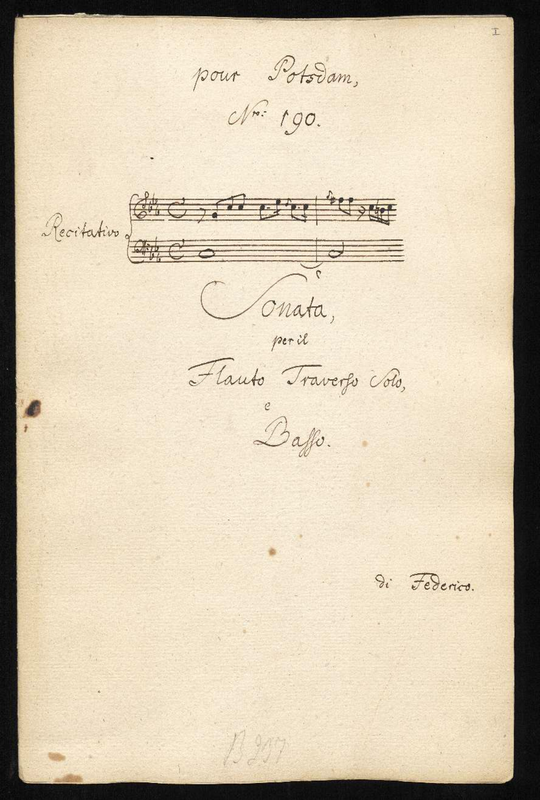 I
pour Potsdam,
Nro: 190.
Recitativo
e
Sonata,
per il
Flauto Traverso Solo,
e
Basso.
di Federico.